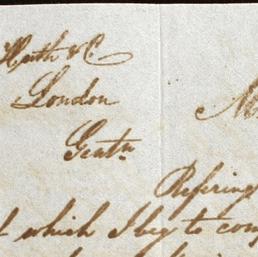 Heath & C.
London
M
Gentn
Refering
t which I beg to com